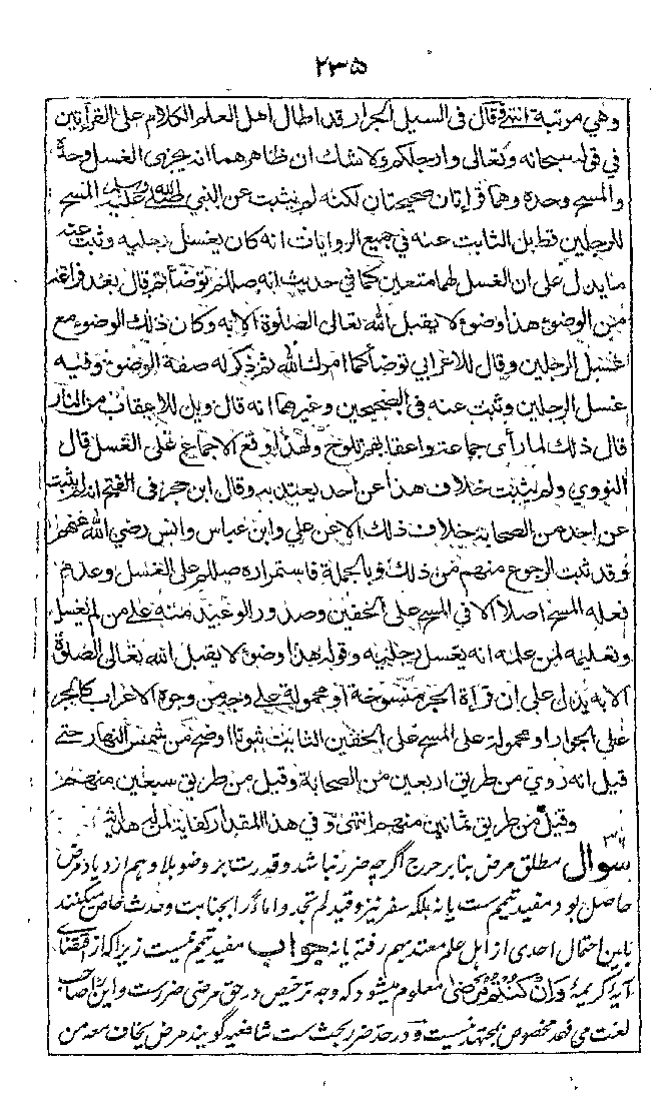 ۲۳۵
وهي مرتبة انتهى وقال في السيل الجرار قد اطال اهل العلم الكلام على القرأتين
في قوله سبحانه وتعالى وارجلكم ولا شك ان ظاهرهما انه يجزى الغسل وحده
والمسح وحده وهما قراءتان صحيحتان لكنه لم يثبت عن النبي صلى الله عليه وسلم المسح
للرجلين قط بل الثابت عنه في جميع الروايات انه كان يغسل رجليه وثبت عنه
ما يدل على ان الغسل لهما متعين كما في حديث انه صللم توضأ ثم قال بعد فراغه
من الوضوء هذا وضوء لا يقبل الله تعالى الصلوة الا به وكان ذلك الوضوء مع
غسل الرجلين وقال للاعرابي توضأ كما امرك الله ثم ذكر له صفة الوضوء وفيه
غسل الرجلين وثبت عنه في الصحيحين وغيرهما انه قال ويل للاعقاب من النار
قال ذلك لما رأى جماعة واعقابهم تلوح ولهذا وقع الاجماع على الغسل قال
النووي ولم يثبت خلاف هذا عن احد يعتد به وقال ابن حجر في الفتح انه لم يثبت
عن احد من الصحابة خلاف ذلك الا عن علي وابن عباس وانس رضي الله عنهم
وقد ثبت الرجوع منهم من ذلك وبالجملة فاستمراره صللم على الغسل وعدم
فعله المسح اصلا الا في المسح على الخفين وصدور الوعيد منه على من لم يغسل
وتعليمه لمن علمه انه يغسل رجليه وقوله هذا وضوء لا يقبل الله تعالى الصلوة
الا به يدل على ان قراءة الجر منسوخة او محمولة على وجه من وجوه الاعراب كالجر
على الجوار او محمولة على المسح على الخفين الثابت ثبوتا اوضح من شمس النهار حتى
قيل انه روي من طريق اربعين من الصحابة وقيل من طريق سبعين منهم
وقيل من طريق ثمانين منهم انتهى وفي هذا المقدار كفاية لمن له هداية
۳۶ سوال مطلق مرض بنا بر حرج اگرچه ضرر نباشد و قدرت بر وضو بلا وهم ازدياد مرض
حاصل بود مفيد تيمم ست يا نه بلكه سفر نيز و قيد لم تجدوا ماء را بجنابت وحدث خاص ميكنند
باين احتمال احدى از اهل علم معتد بهم رفته يا نه جواب مفيد تيمم نيست زيرا كه از اقتضاى
آية كريمة وَاِنْ كُنْتُمْ مَرْضىٰ معلوم ميشود كه وجه ترخيص در حق مرضى ضررست واين را صاحب
لغت مى فهمد مخصوص بمجتهد نيست و در حد ضرر بحث ست شافعيه گويند مرض يخاف معه من